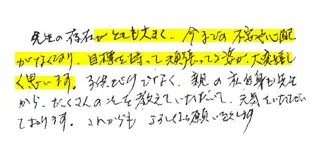 先生の存在がとても大きく、今までの不安や心配
がなくなり、目標を持って頑張ってる姿が、大変嬉し
く思います。子供だけでなく、親の私自身も先生
から、たくさんの元を教えていただいて、元気をいただい
ております。これからもよろしくお願い致します